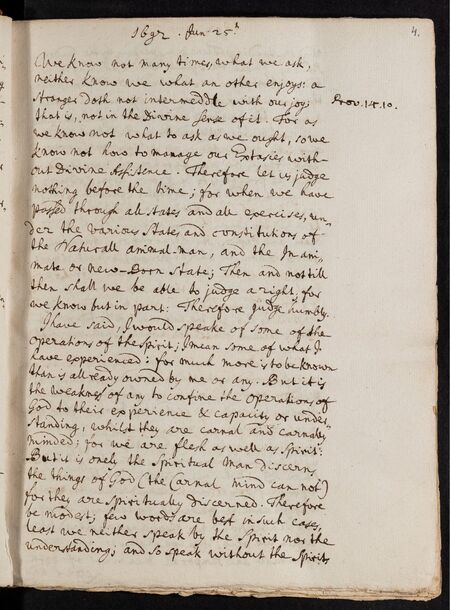 4.
1692. Jun 25th
We know not many times, what we ask,
neither know we what an other enjoys: a
stranger doth not intermeddle with our joy:
Prov. 14. 10.
that is, not in the Divine sense of it. For as
we know not what to ask as we ought, so we
know not how to manage our Extasies with-
out Divine Assistence. Therefore let us judge
nothing before the time; for when we have
passed through all states and all exercises, un-
der the various States and constitutions of
the Naturall animal-man, and the
or new-Born State; Then and not till
then shall we be able to judge a right; for
we know but in part: Therefore judge humbly.
I have said, I would speake of some of the
operations of the Spirit; I mean some of what I
have experienced: for much more is to be known
than is allready owned by me or any. But it is
the weakness of any to confine the operations of
God to their experience & capacity or under-
standing, whilst they are carnal and carnally
minded; for we are flesh as well as Spirit:
But it is onely the Spiritual Man discerns
the things of God (the Carnal mind can not)
for they are Spiritually discerned. Therefore
be modest; few words are best in such cases,
least we neither speak by the Spirit nor the
understanding; and so speak without the Spirit,